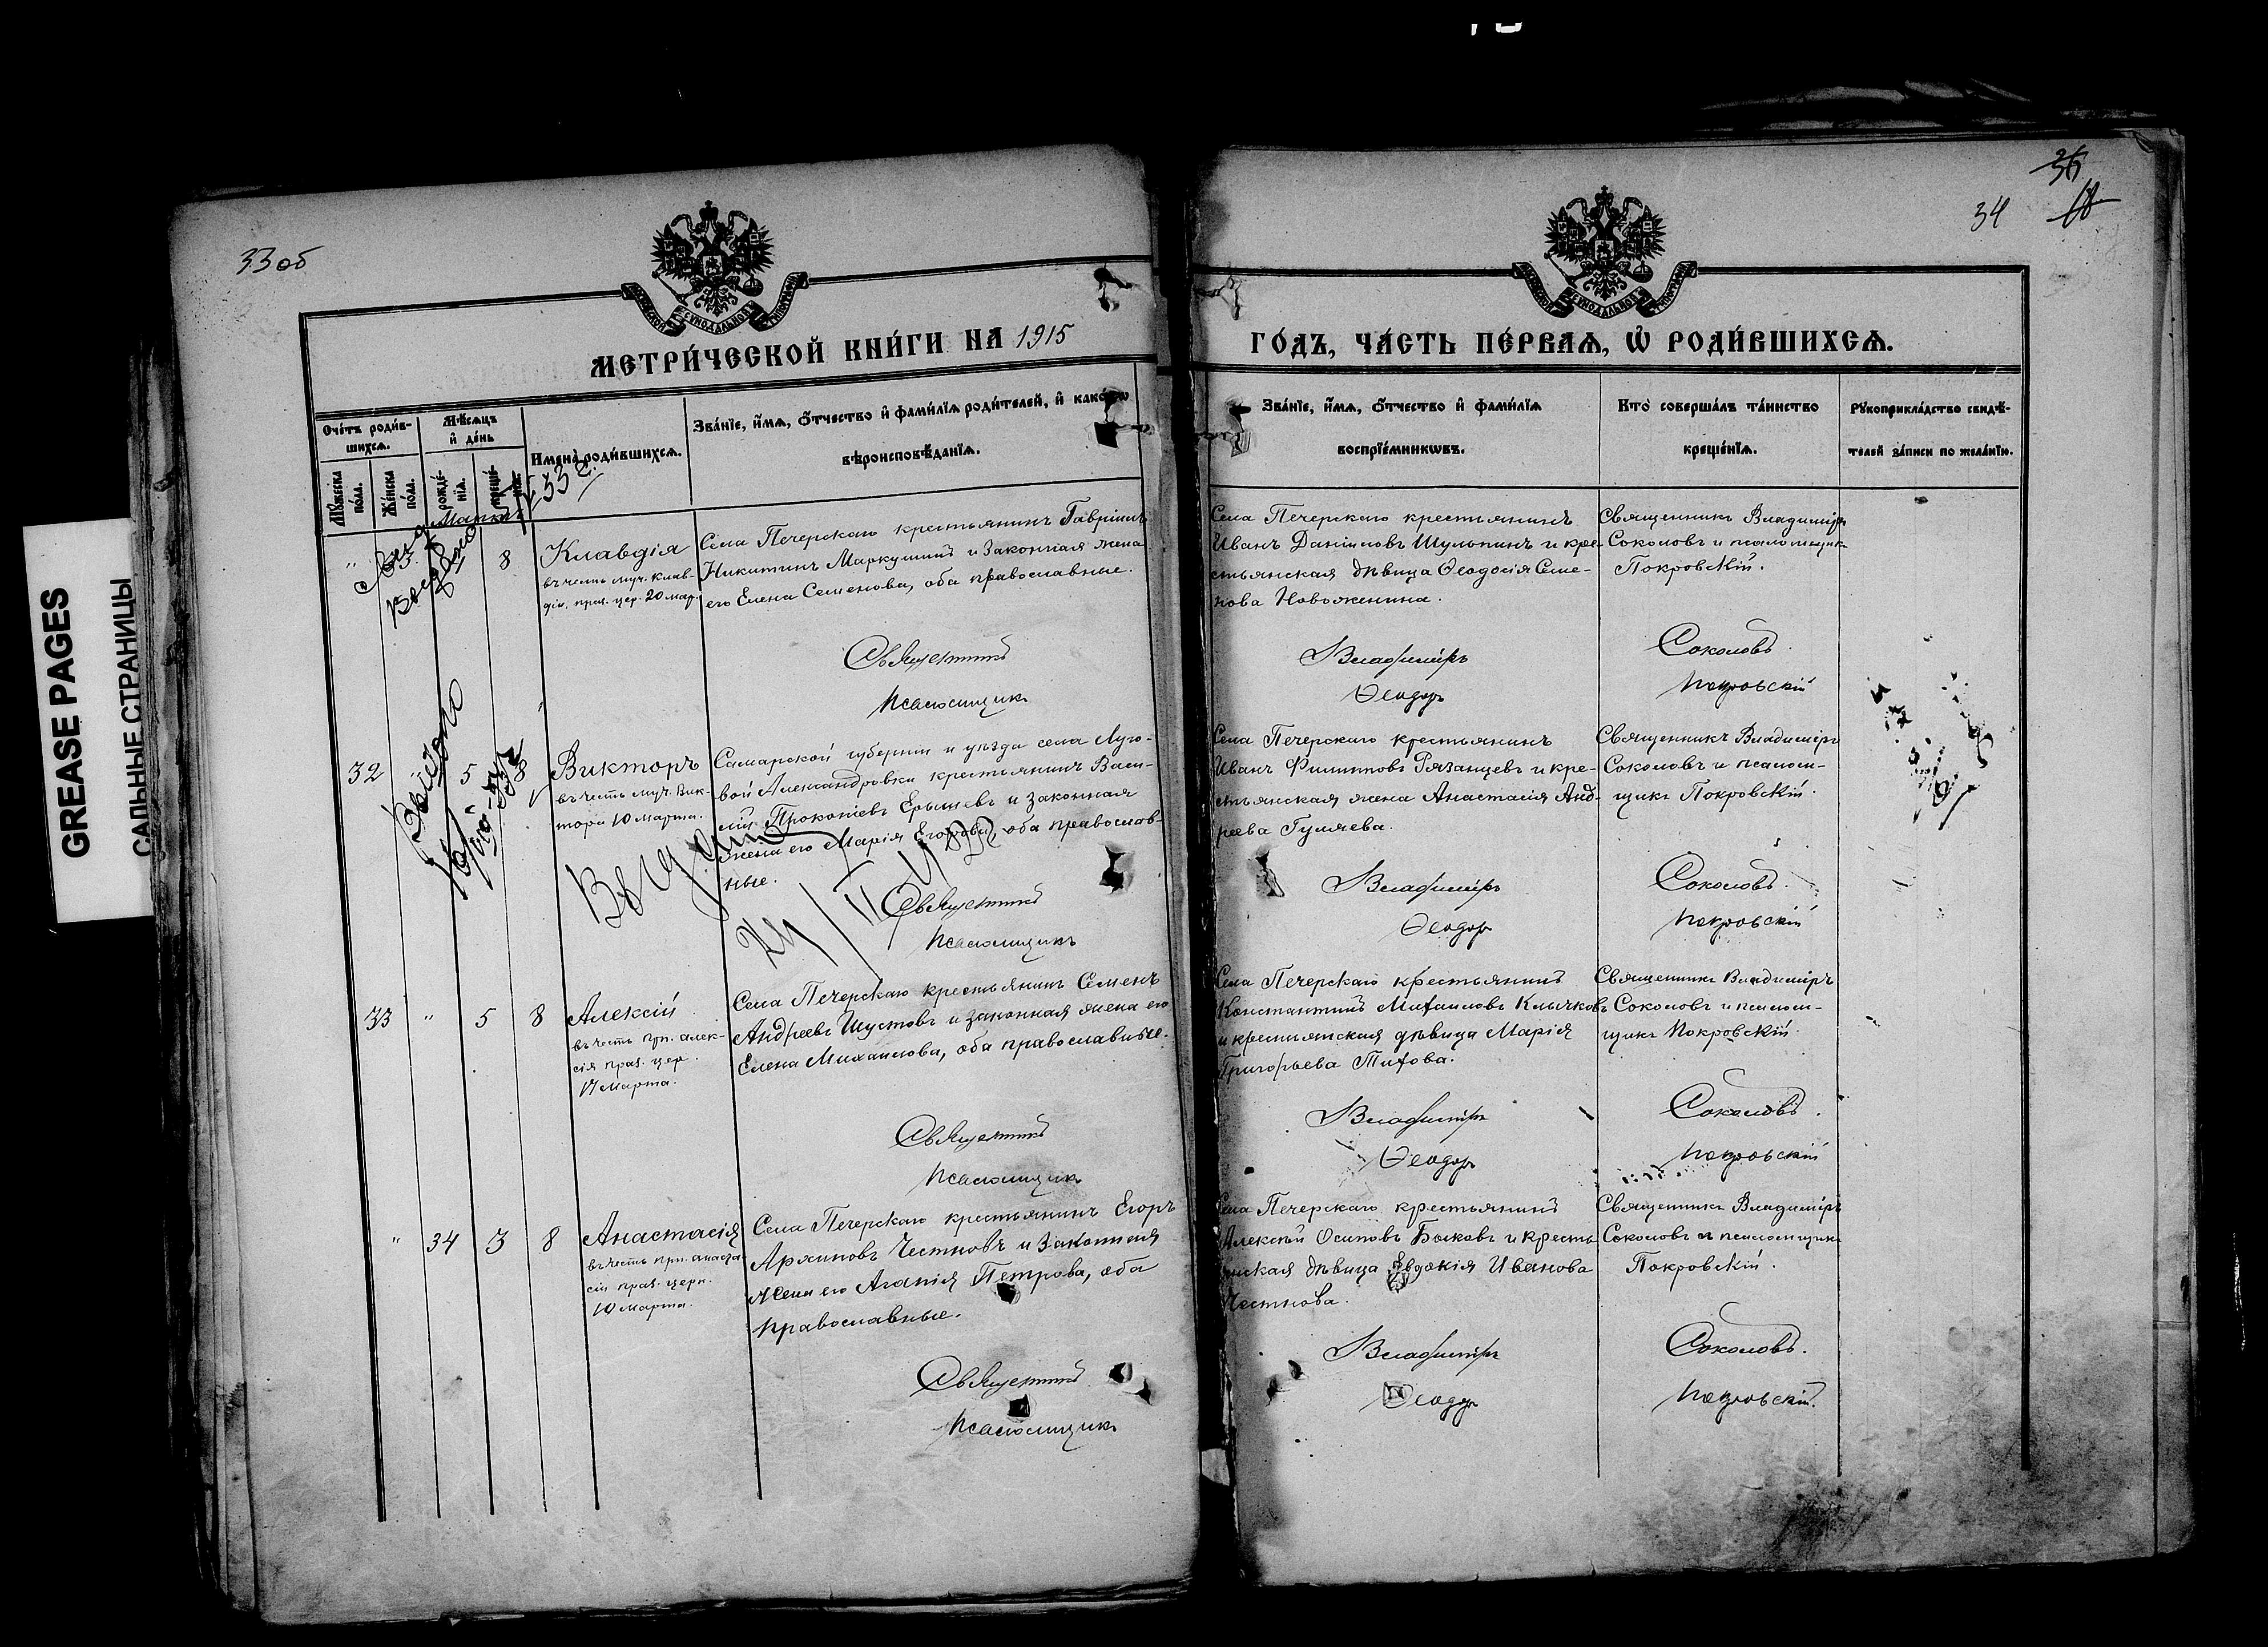 GREASE PAGES
САЛЬНЫЕ СТРАНИЦЫ
33 об
МЕТРИ́ЧЕСКОЙ КНИ́ГИ НА 1915
Сче́тъ роди́в-
шихсѧ.
Мѣ́сѧцъ
и҆ де́нь
Имена̀ роди́вшихсѧ.
Зва́нїе, и҆́мѧ, ѻ҆́тчество и҆ фами́лїѧ роди́телей, и҆ како́гѡ
вѣроисповѣ́данїѧ.
Мꙋ́жеска
по́ла.
Же́нска
по́ла.
рожде́-
нїѧ.
креще́-
нїѧ.
Марта
33 г.
"
8
Клавдія
въ честь муч. Клав-
діи, праз. цер. 20 мар.
Села Печерскаго крестьянинъ Гавріилъ
Никитинъ Маркушинъ и законная жена
его Елена Семенова, оба православные.
Священникъ
Псаломщикъ
32
5
8
Викторъ
въ честь муч. Вик-
тора 10 марта.
Самарской губерніи и уѣзда села Луго-
вой Александровки крестьянинъ Васи-
лій Прокопіевъ Ерышевъ и законная
жена его Марія Егорова, оба православ-
ные.
Священникъ
Псаломщикъ
33
"
5
8
Алексій
въ честь прп. Алек-
сія праз. цер.
17 марта.
Села Печерскаго крестьянинъ Семенъ
Андреевъ Шустовъ и законная жена его
Елена Михаилова, оба православные.
Священникъ
Псаломщикъ
"
34
3
8
Анастасія
въ честь прп. Анаста-
сіи праз. церк.
10 марта.
Села Печерскаго крестьянинъ Егоръ
Архиповъ Честновъ и законная
жена его Агапія Петрова, оба
православные.
Священникъ
Псаломщикъ
36
34
18
ГО́ДЪ, ЧА́СТЬ ПЕ́РВАѦ, Ѡ҆ РОДИ́ВШИХСѦ.
Зва́нїе, и҆́мѧ, ѻ҆́тчество и҆ фами́лїѧ
воспрїе́мникѡвъ.
Кто̀ соверша́лъ та́инство
креще́нїѧ.
Рꙋкоприкла́дство свидѣ́-
телей за́писи по жела́нїю.
Села Печерскаго крестьянинъ
Иванъ Даніиловъ Шульпинъ и кре-
стьянская дѣвица Ѳеодосія Семе-
нова Новоженина.
Священникъ Владиміръ
Соколовъ и псаломщик
Покровскій.
Владиміръ
Соколовъ.
Ѳеодоръ
Покровскій
Села Печерскаго крестьянинъ
Иванъ Филипповъ Рязанцевъ и кре-
стьянская жена Анастасія Анд-
реева Гуляева.
Священникъ Владиміръ
Соколовъ и псалом-
щикъ Покровскій.
Владиміръ
Соколовъ.
Ѳеодоръ
Покровскій
Села Печерскаго крестьянинъ
Константинъ Михаиловъ Клычковъ
и крестьянская дѣвица Марія
Григорьева Титова.
Священникъ Владиміръ
Соколовъ и псалом-
щикъ Покровскій.
Владиміръ
Соколовъ.
Ѳеодоръ
Покровскій
Села Печерскаго крестьянинъ
Алексѣй Осиповъ Быковъ и кресть-
янская дѣвица Евдокія Иванова
Честнова.
Священникъ Владиміръ
Соколовъ и псаломщик
Покровскій.
Владиміръ
Соколовъ.
Ѳеодоръ
Покровскій.